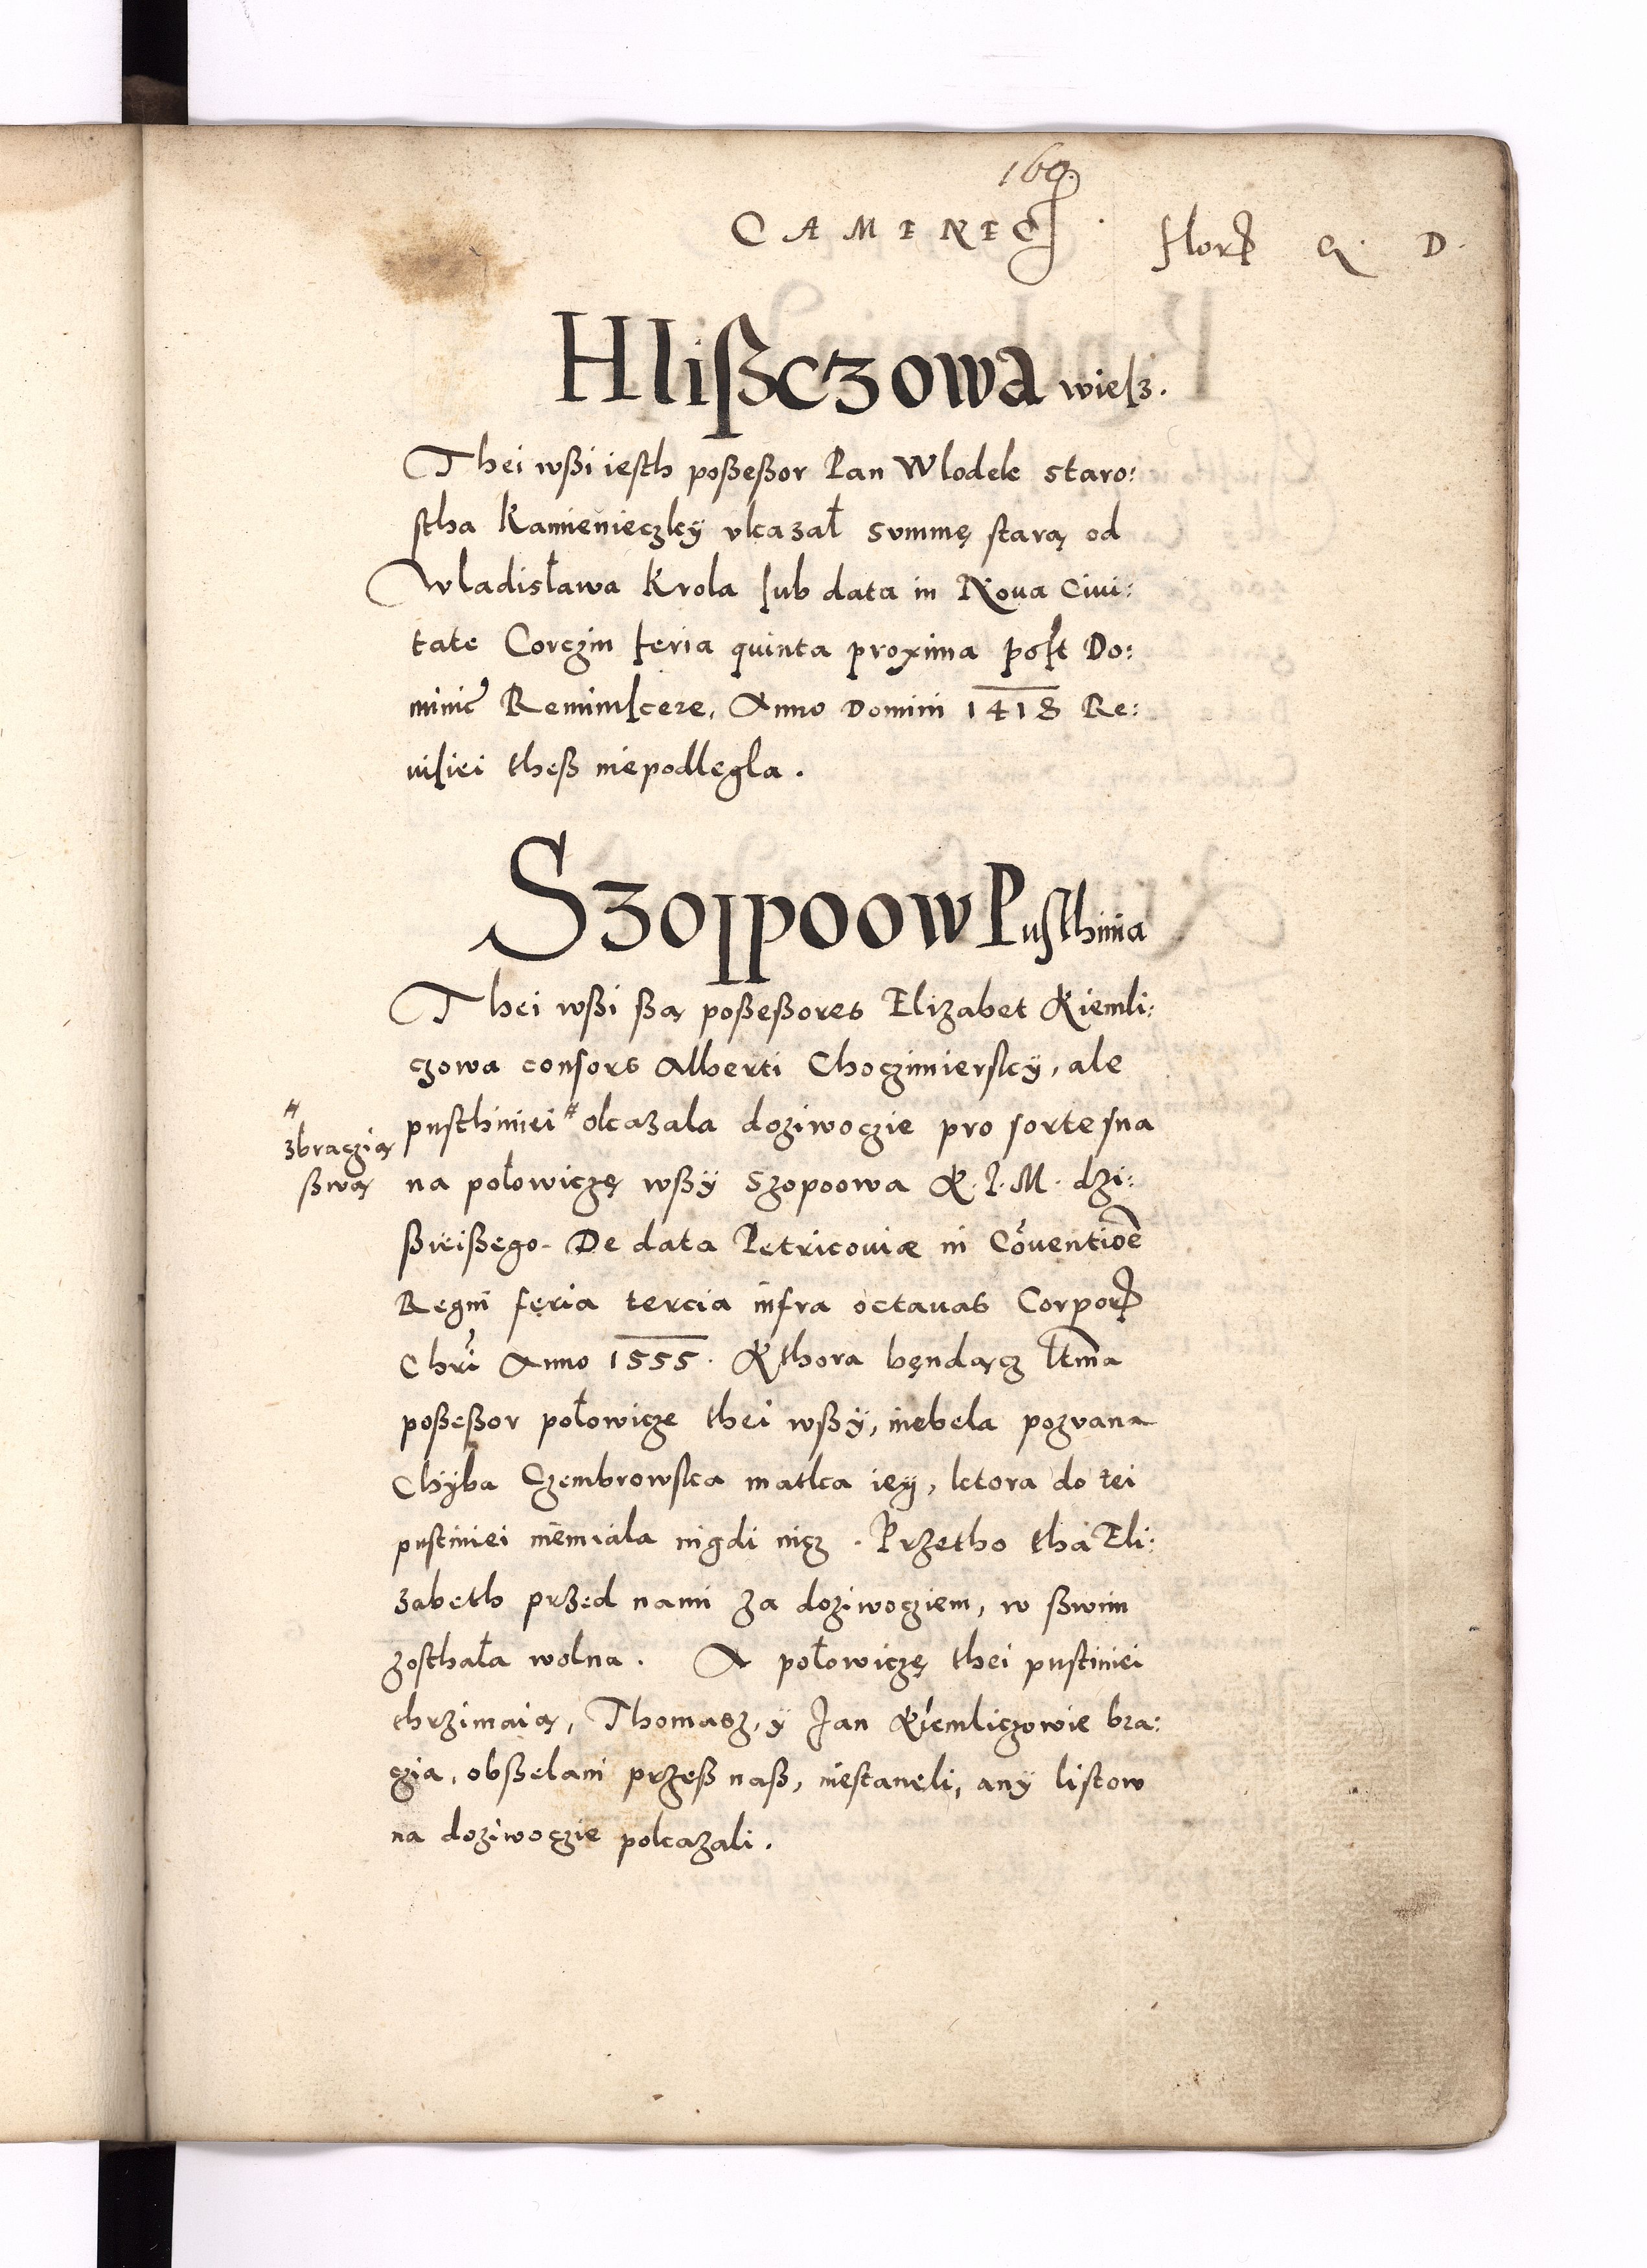 160.
CAMENEC.
Flor. G. D.
Hlißczowa wiesz.
Thei wßi iesth poßeßor Pan Wlodek staro:
stha Kamienieczky vkazał svmmę starą od
Władisława Krola sub data in Noua Ciui:
tate Corczin feria quinta proxima post Do:
minic Reminiscere, Anno Domini 1418 Re:
uisiei theß niepodlegla.
Szoppoow Pusthinia
Thei wßi ßą poßeßores Elizabet Kiemli:
czowa consors Alberti Choczimiersky, ale
pusthiniei # okazala doziwoczie pro sorte sua
#
zbraczią
ßwą
na połowiczę wßÿ Szopoowa K. J. M. dzi:
ßieißego. De data Petricouiæ in Cōuentiōe
Regni feria tercia infra octauas Corpor
Chri Anno 1555. Kthora będącz ltma
poßeßor połowicze thei wßÿ, niebela pozvana
Chÿba Czembrowska matka iey, ktora do tei
pustiniei niemiala nigdi nicz. Przetho tha Eli:
zabeth przed nami za doziwocziem, w ßwim
zosthała wolna. A połowiczę thei pustiniei
thrzimaią, Thomasz, y Jan Kiemliczowie bra:
czia, obßelani przeß naß, niestaneli, anÿ listow
na doziwoczie pokazali.